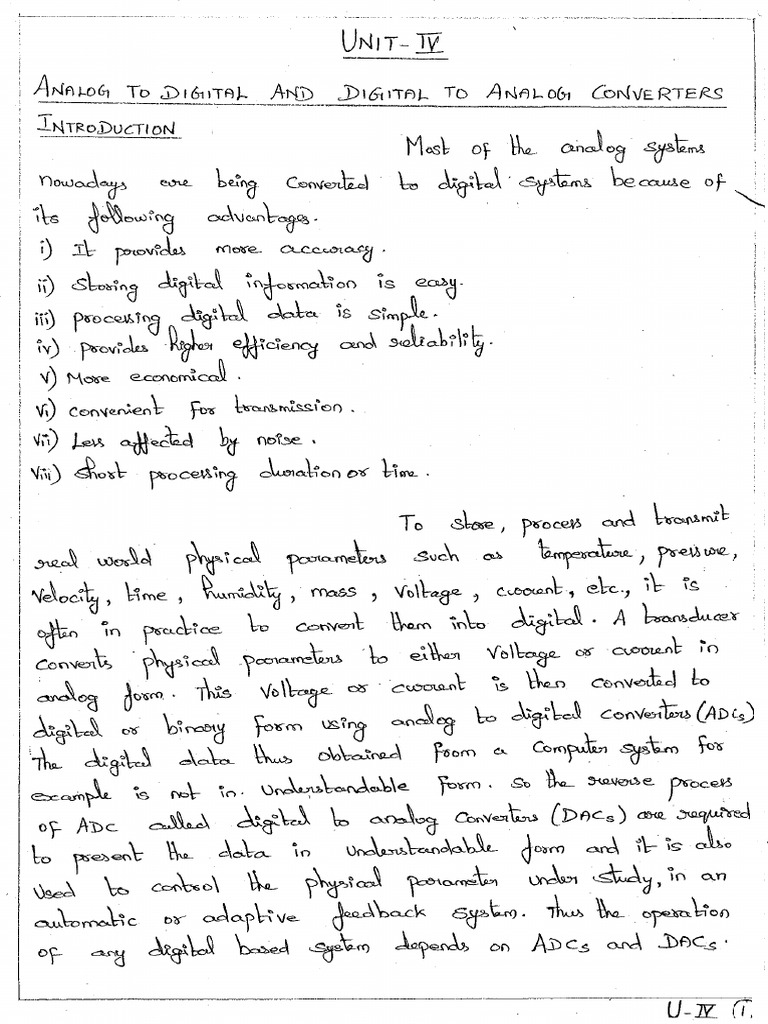 UNIT-IV
ANALOG TO DIGITAL AND DIGITAL TO ANALOG CONVERTERS
INTRODUCTION
Most of the analog systems
nowadays are being converted to digital systems because of
its following advantages.
i) It provides more accuracy.
ii) Storing digital information is easy.
iii) processing digital data is simple.
iv) provides higher efficiency and reliability.
v) More economical.
vi) convenient for transmission.
vii) Less affected by noise.
viii) short processing duration or time.
To store, process and transmit
real world physical parameters such as temperature, pressure,
velocity, time, humidity, mass, voltage, current, etc., it is
often in practice to convert them into digital. A transducer
converts physical parameters to either voltage or current in
analog form. This voltage or current is then converted to
digital or binary form using analog to digital converters (ADCs)
The digital data thus obtained from a computer system for
example is not in. understandable form. so the reverse process
of ADC called digital to analog converters (DACs) are required
to present the data in understandable form and it is also
used to control the physical parameter under study, in an
automatic or adaptive feedback system. Thus the operation
of any digital based system depends on ADCs and DACs.
U-IV 1